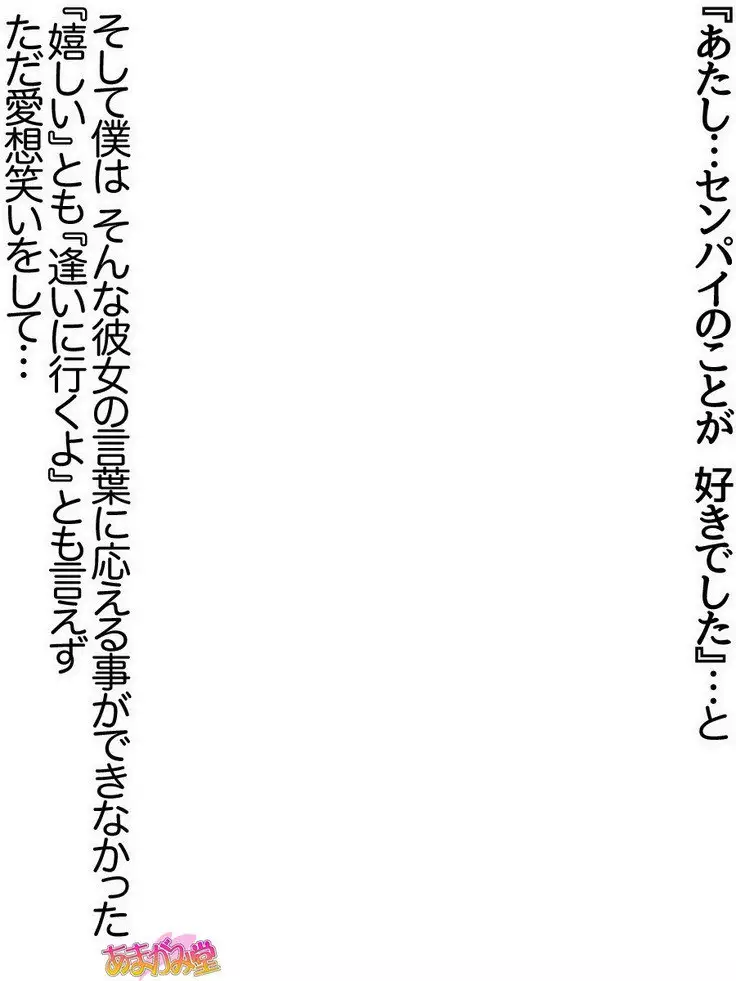 『あたし…センパイのことが　好きでした』…と
そして僕は　そんな彼女の言葉に応える事ができなかった
『嬉しい』とも『逢いに行くよ』とも言えず
ただ愛想笑いをして…
あまがみ堂